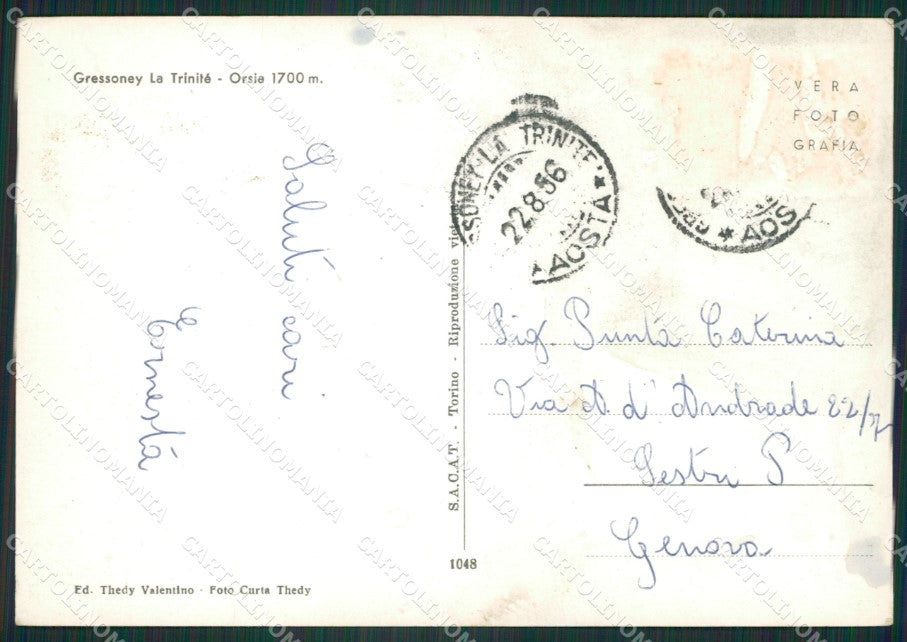 Gressoney La Trinité - Orsia 1700 m.
VERA
FOTO
GRAFIA
SSONEY-LA TRINITE * AOSTA *
22.8.56
AOS
Saluti cari
Ernesta
S.A.C.A.T. - Torino - Riproduzione vie
Sig. Punta Caterina
Via A. d'Andrade 22/
Sestri P
Genova
1048
Ed. Thedy Valentino - Foto Curta Thedy
CARTOLINOMANIA